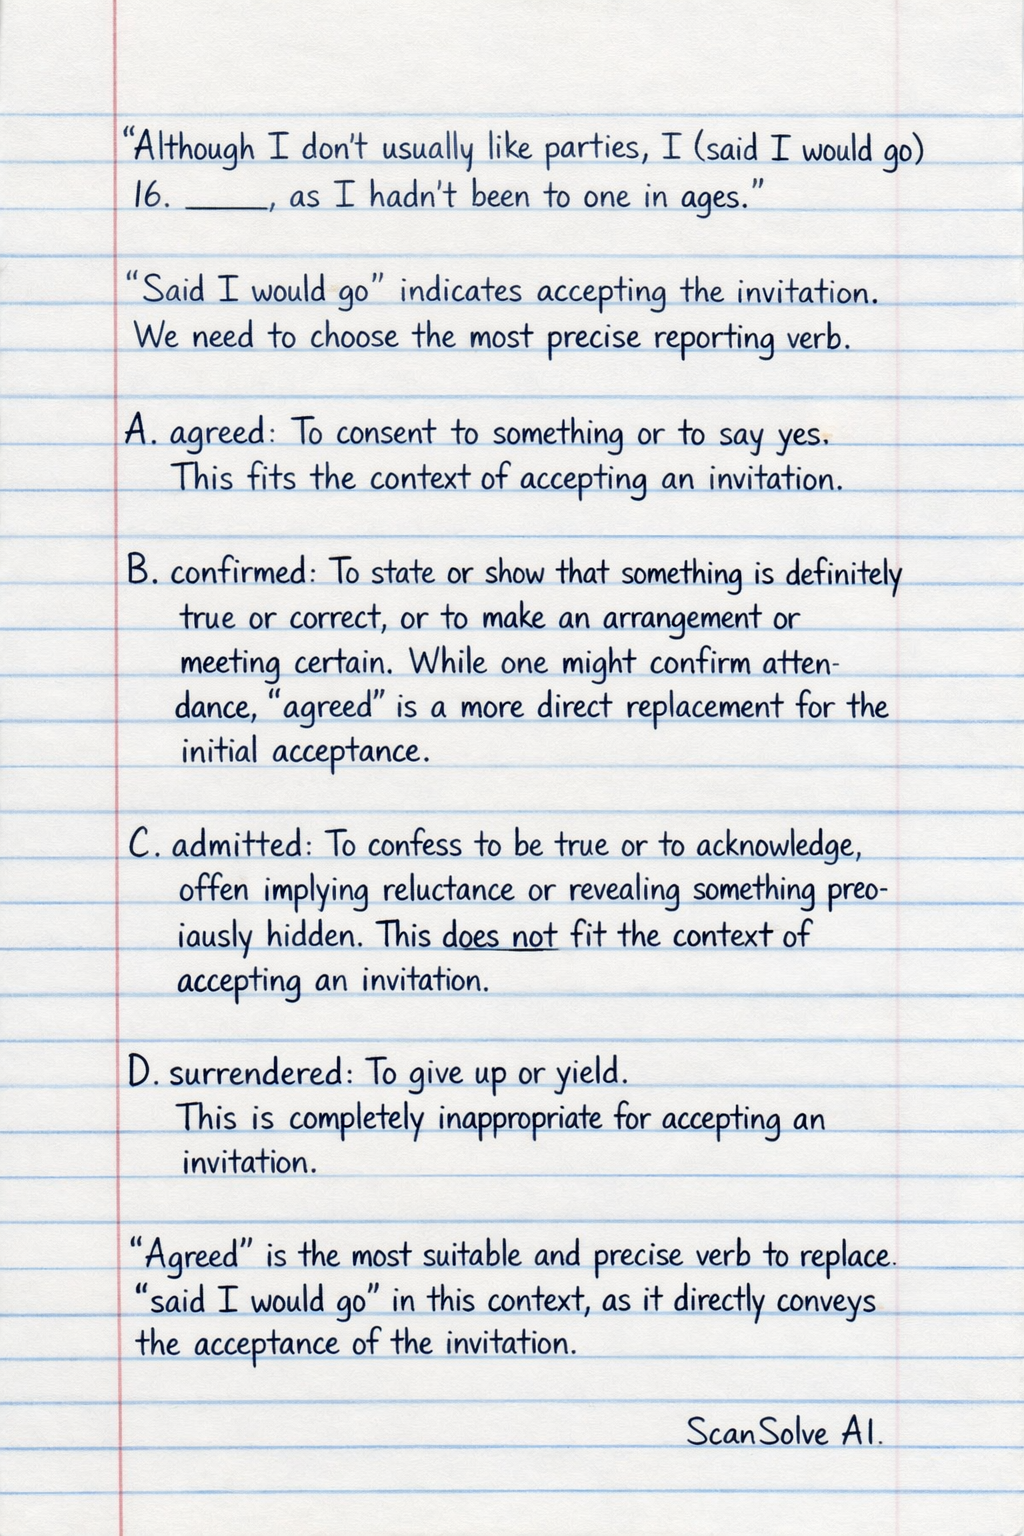 “Although I don't usually like parties, I (said I would go)
16. _____, as I hadn't been to one in ages.”
“Said I would go” indicates accepting the invitation.
We need to choose the most precise reporting verb.
A. agreed: To consent to something or to say yes.
This fits the context of accepting an invitation.
B. confirmed: To state or show that something is definitely
true or correct, or to make an arrangement or
meeting certain. While one might confirm atten-
dance, “agreed” is a more direct replacement for the
initial acceptance.
C. admitted: To confess to be true or to acknowledge,
offen implying reluctance or revealing something preo-
iausly hidden. This does not fit the context of
accepting an invitation.
D. surrendered: To give up or yield.
This is completely inappropriate for accepting an
invitation.
“Agreed” is the most suitable and precise verb to replace.
“said I would go” in this context, as it directly conveys
the acceptance of the invitation.
ScanSolve AI.